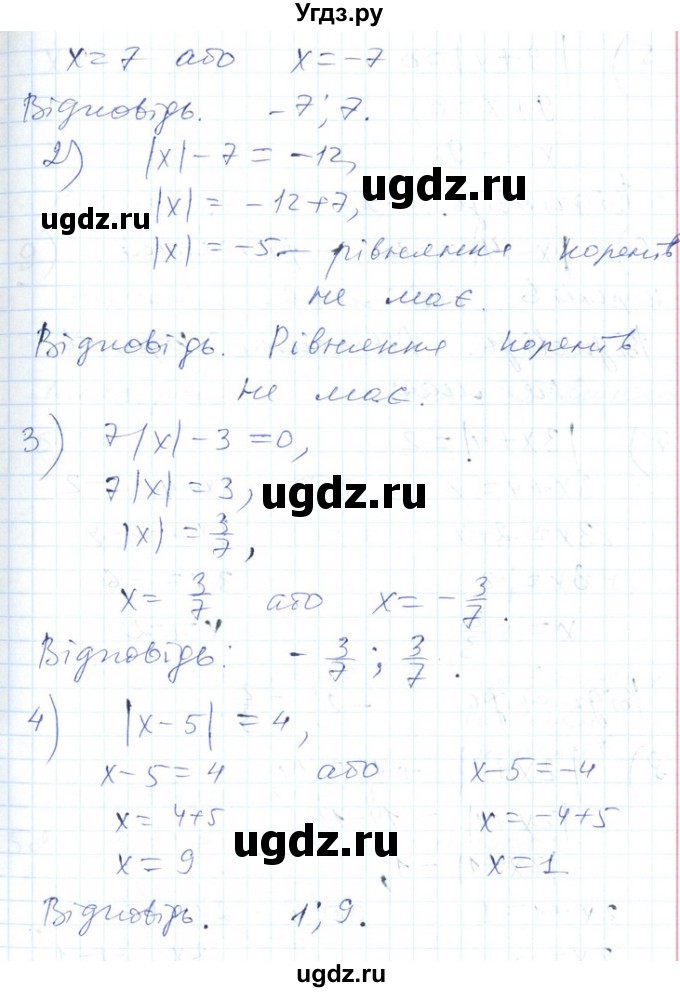 Угдз.ру
x = 7 або x = -7
Відповідь. -7; 7.
2) |x| - 7 = -12,
ugdz.ru
|x| = -12+7,
ugdz.ru
|x| = -5 – рівняння коренів
не має.
Відповідь. Рівняння коренів
не має.
3) 7|x| - 3 = 0,
7|x| = 3,
ugdz.ru
|x| = 3/7,
x = 3/7, або x = - 3/7.
Відповідь: - 3/7; 3/7.
4) |x-5| = 4,
x-5 = 4 або x-5 = -4
x = 4+5 x = -4+5
ugdz.ru
x = 9 x = 1
Відповідь. 1; 9.
ugdz.ru